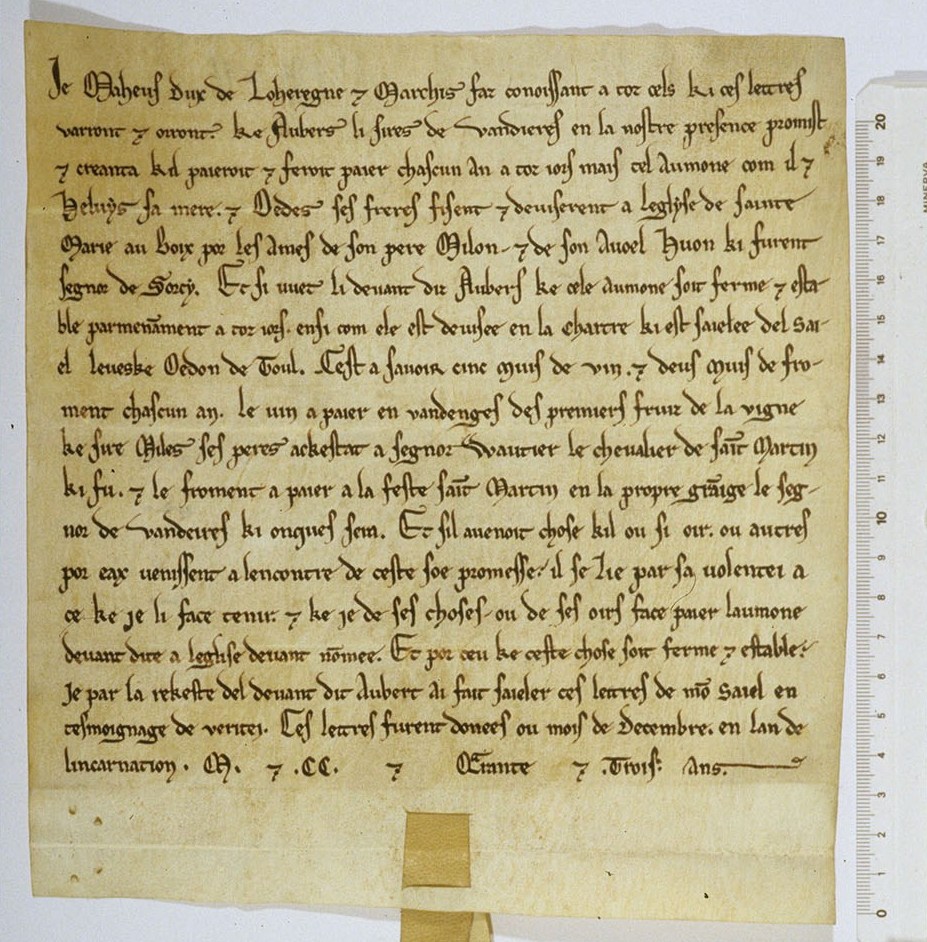 Je Maheus dux de Loheregne ⁊ Marchis faz conoissant a toz cels ki ces lettres
varront ⁊ oiront. ke Aubers li sires de Vandieres en la nostre presence promist
⁊ creanta kil paieroit ⁊ feroit paier chascun An a toz iors mais tel Aumone com il ⁊
Heluys sa mere. ⁊ Oedes ses freres fisent ⁊ deuiserent a leglyse de sainte
Marie au Boix por les Ames de son pere Milon. ⁊ de son Auoel Huon ki furent
segnor de Sorcy. Et si vuet li deuant diz Aubers ke cele Aumone soit ferme ⁊ esta-
ble parmenāment a toz iors. ensi com ele est deuisee en la Chartre ki est saielee del sai-
el leueske Oedon de Toul. Cest a sauoir cinc muis de vin. ⁊ deus muis de fro-
ment chascun an. le uin a paier en vandenges des premiers fruiz de la vigne
ke sire Miles ses peres ackestat a segnor Wautier le cheualier de saīt Martin
ki fu. ⁊ le froment a paier a la feste saīt Martin en la propre grāige le seg-
nor de Vandeires ki onques sem. Et sil auenoit chose kil ou si oir. ou autres
por eax uenissent a lencontre de ceste soe promesse. il se lie par sa uolentei a
ce ke je li face tenir. ⁊ ke je de ses choses. ou de ses oirs face paier laumone
deuant dite a leglise deuant nōmee. Et por ceu ke ceste chose soit ferme ⁊ estable.
Je par la rekeste del deuant dit Aubert Ai fait saieler ces lettres de mō saiel en
tesmoignage de veritei. Ces lettres furent donees ou mois de Decembre. en lan de
lincarnation. M. ⁊ .CC. ⁊ Trante ⁊ .Trois. Ans.
0 1 2 3 4 5 6 7 8 9 10 11 12 13 14 15 16 17 18 19 20